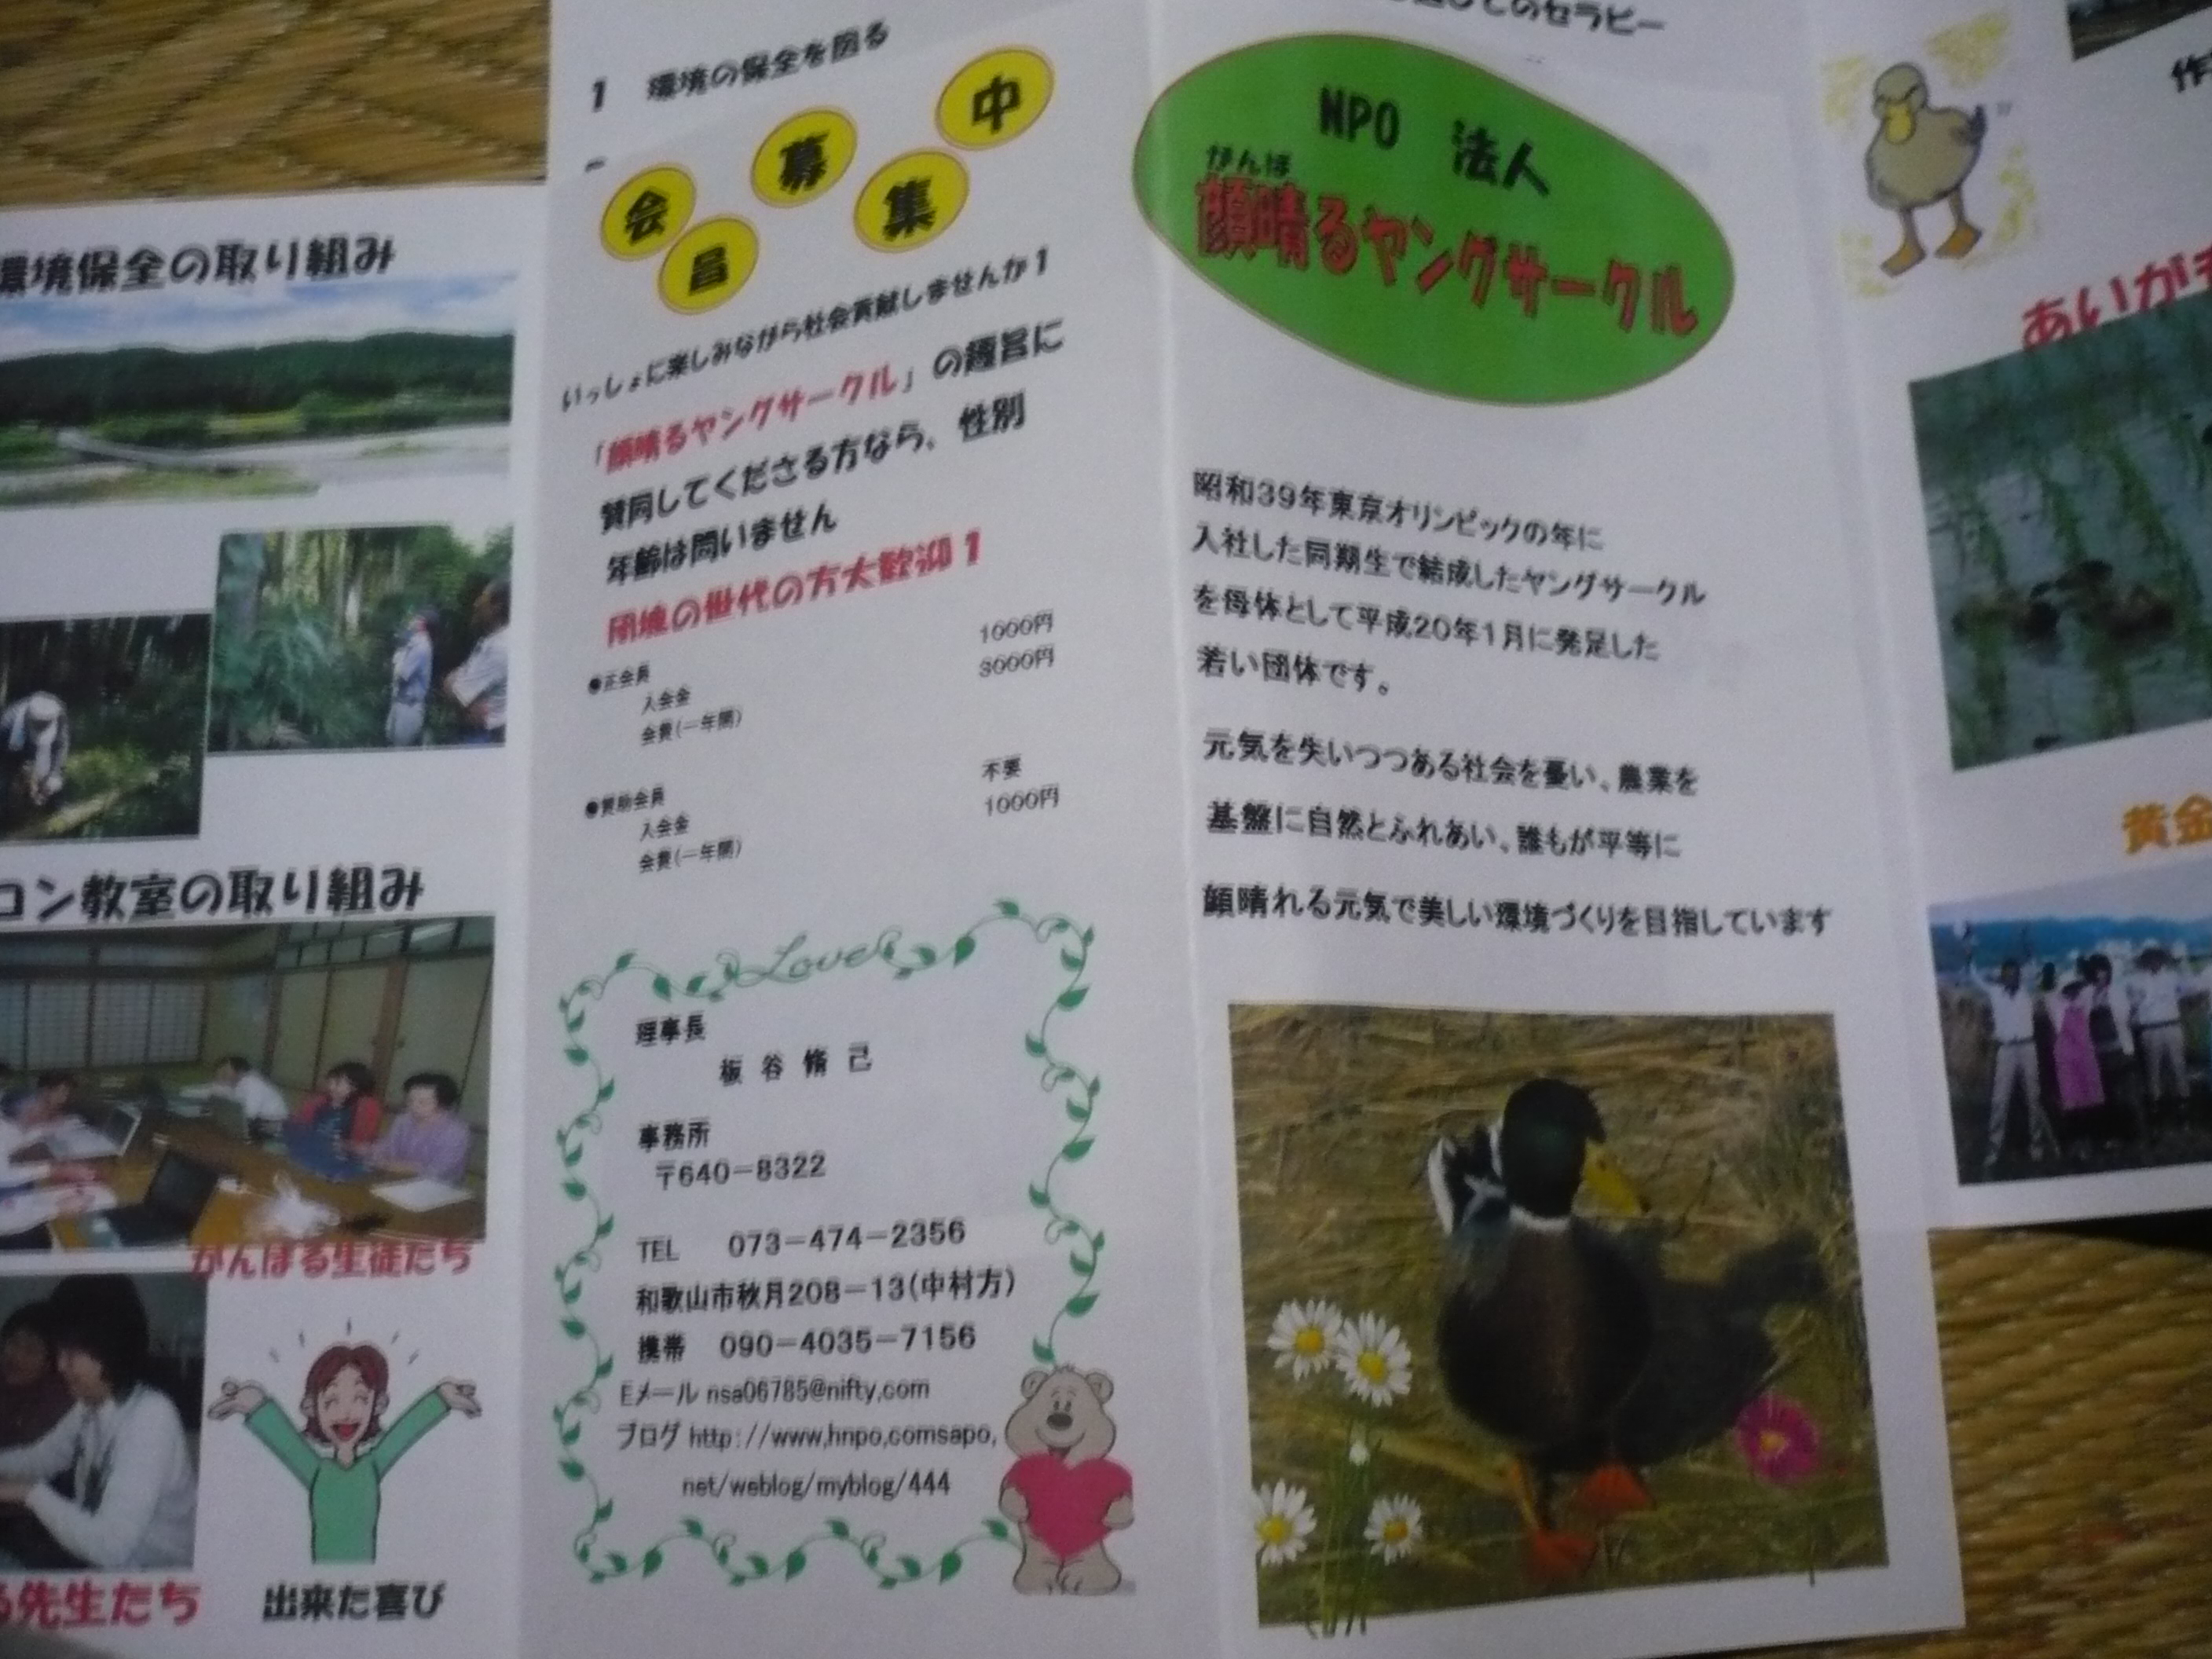 環境保全の取り組み
コン教室の取り組み
がんばる生徒たち
先生たち
出来た喜び
1 環境の保全を図る
会員募集中
いっしょに楽しみながら社会貢献しませんか!
「顔晴るヤングサークル」の趣旨に
賛同してくださる方なら、性別
年齢は問いません
団塊の世代の方大歓迎!
●正会員
入会金 1000円
会費(一年間) 3000円
●賛助会員
入会金 不要
会費(一年間) 1000円
Love
理事長
板谷脩己
事務所
〒640-8322
TEL 073-474-2356
和歌山市秋月208-13(中村方)
携帯 090-4035-7156
Eメール nsa06785@nifty.com
ブログ http://www.hnpo.comsapo.
net/weblog/myblog/444
のセラピー
NPO 法人
がんば
顔晴るヤングサークル
昭和39年東京オリンピックの年に
入社した同期生で結成したヤングサークル
を母体として平成20年1月に発足した
若い団体です。
元気を失いつつある社会を憂い、農業を
基盤に自然とふれあい、誰もが平等に
顔晴れる元気で美しい環境づくりを目指しています
作
あいがも
黄金